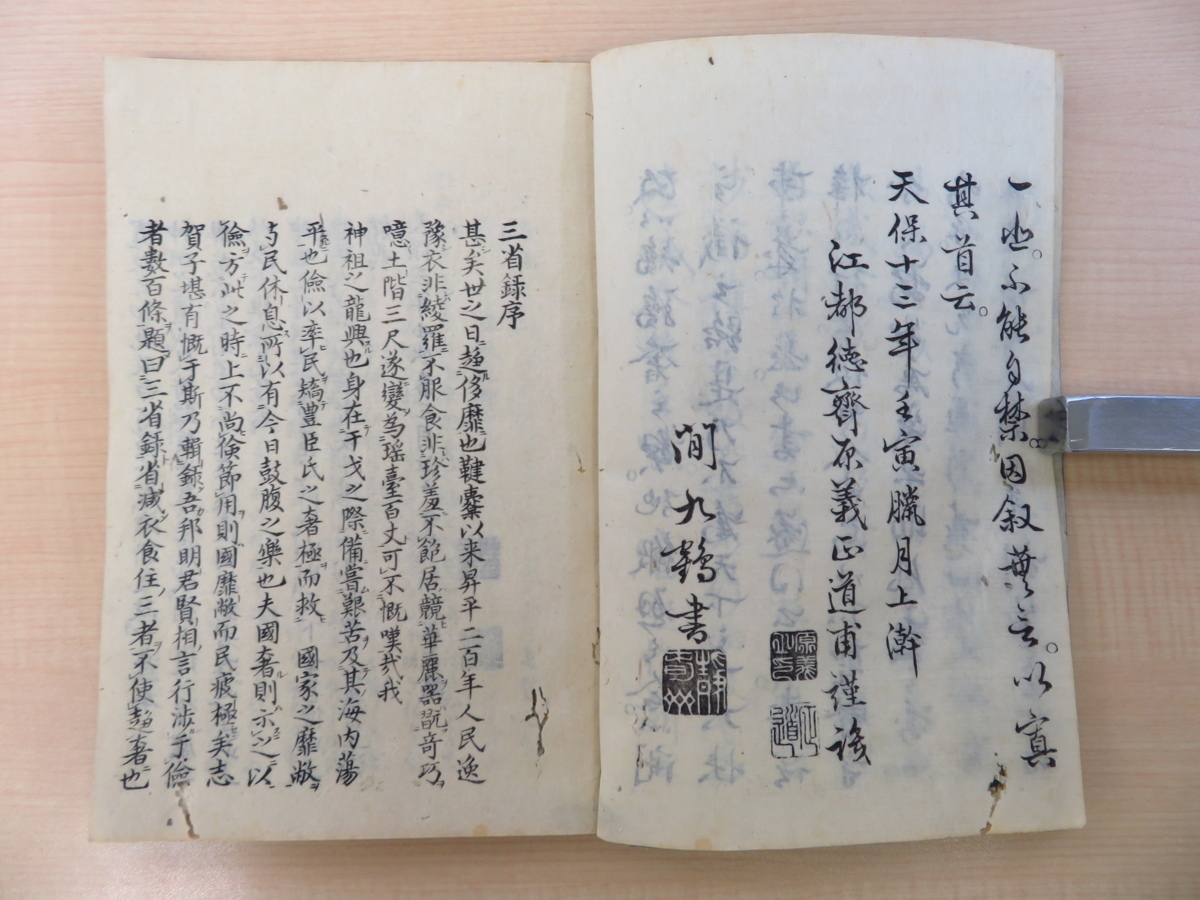 一也。不能自禁。因叙蕪言。以寘
其首云。
天保十三年壬寅臘月上澣
江都徳齋原義正道甫謹譔
間九鶴書
三省録序
甚矣世之日趍侈靡也鞬櫜以来昇平二百年人民逸
豫衣非綾羅不服食非珍羞不飽居競華麗器翫奇巧
噫土階三尺遂變為瑶臺百丈可不慨嘆㢤我
神祖之龍興也身在干戈之際備嘗艱苦及其海内蕩
平也儉以率民矯豊臣氏之奢極而救國家之靡敝
与民休息所以有今日鼓腹之樂也夫國奢則示之以
儉方此之時上不尚儉節用則國靡敝而民疲極矣志
賀子堪有慨于斯乃輯録吾邦明君賢相言行渉于儉
者數百條題曰三省録省減衣食住三者不使趍奢也